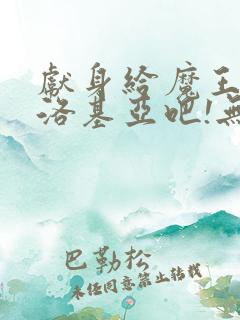 獻身給魔王
洛基亞吧!無
巴勒松
未經同意禁止轉載